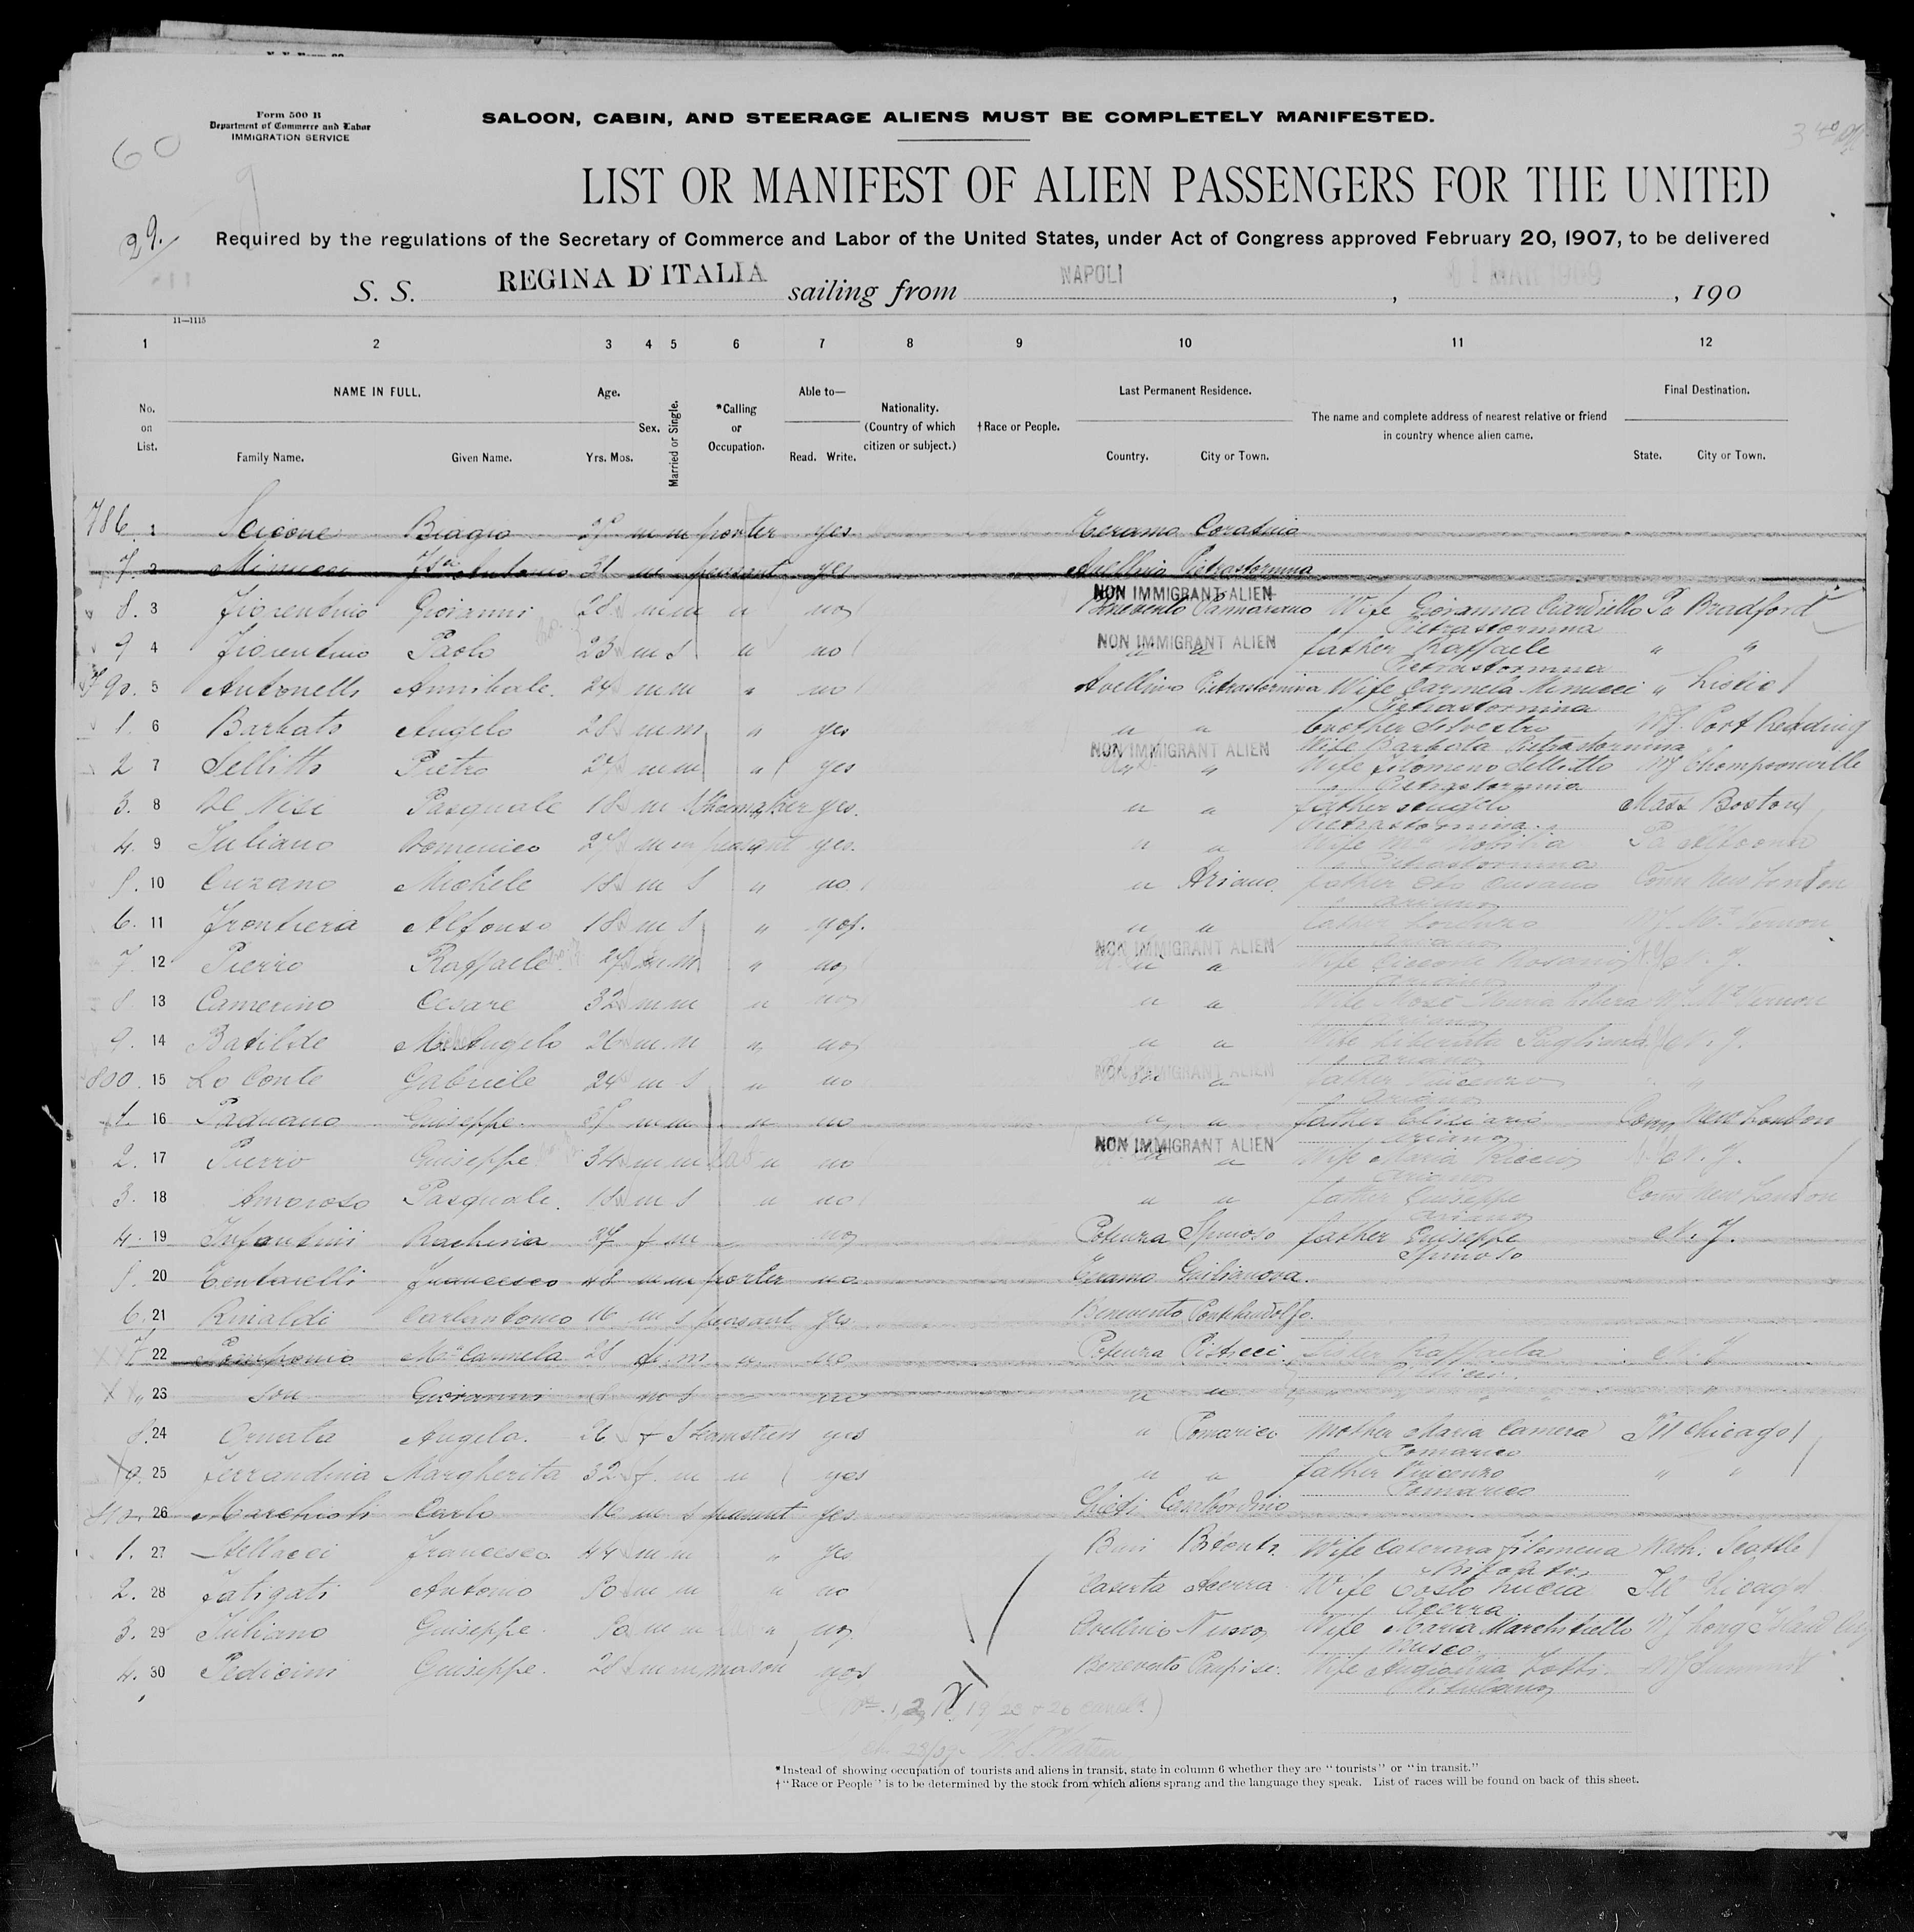 Form 500 B
Department of Commerce and Labor
IMMIGRATION SERVICE
60
SALOON, CABIN, AND STEERAGE ALIENS MUST BE COMPLETELY MANIFESTED.
LIST OR MANIFEST OF ALIEN PASSENGERS FOR THE UNITED
29.
Required by the regulations of the Secretary of Commerce and Labor of the United States, under Act of Congress approved February 20, 1907, to be delivered
S. S. REGINA D'ITALIA sailing from NAPOLI , MAR 1909 , 190
11—1115
1 2 3 4 5 6 7 8 9 10 11 12
No. on List. NAME IN FULL. Family Name. Given Name. Age. Yrs. Mos. Sex. Married or Single. *Calling or Occupation. Able to— Read. Write. Nationality. (Country of which citizen or subject.) †Race or People. Last Permanent Residence. Country. City or Town. The name and complete address of nearest relative or friend in country whence alien came. Final Destination. State. City or Town.
786 1 Scicone Biagio m m porter yes Teramo
7. 2 Minucci Antonio 31 m peasant yes Avellino Pietrastornina
NON IMMIGRANT ALIEN
8. 3 Fiorentino Giovanni 28 m m " no Benevento Wife Giovanna Ciardiello Pa Bradford
Pietrastornina
NON IMMIGRANT ALIEN
9 4 Fiorentino Paolo 23 m s " no " " father Raffaele " "
Pietrastornina
790. 5 Antonelli Annibale. 24 m m " no Avellino Pietrastornina Wife Carmela Minucci "
Pietrastornina
1. 6 Barbato Angelo 28 m m " yes " " brother Silvestro NJ. Port Reading
NON IMMIGRANT ALIEN Wife Barbata Pietrastornina
2 7 Sellitto Pietro 27 m m " yes " " Wife Filomena Sellitto NJ Thompsonville
Pietrastornina
3. 8 De Nisi Pasquale 18 m s Shoemaker yes. " " father Mass Boston
Pietrastornina
4. 9 Iuliano Domenico 27 m m peasant yes. " " Wife Pa Altoona
Pietrastornina
5. 10 Cuzano Michele 18 m s " no " Ariano father Conn New London
Ariano
6. 11 Frontiera Alfonso 18 m s " yes. " " father Mt. Vernon
NON IMMIGRANT ALIEN Ariano
7. 12 Pierro Raffaele 27 m m " no " " Wife N. Y.
Ariano
8. 13 Camerino Cesare 32 m m " no " " Wife Mt. Vernon
Ariano
9. 14 Batilde M. Angelo 26 m m " no " " Wife Liberata N. Y.
NON IMMIGRANT ALIEN Ariano
800. 15 Lo Conte Gabriele 24 m s " no " " father Vincenzo "
Ariano
1. 16 Paduano Giuseppe m m " no " " father Conn New London
NON IMMIGRANT ALIEN Ariano
2. 17 Pierro Giuseppe 34 m m " no " " Wife Maria N. Y.
Ariano
3. 18 Amoroso Pasquale. 18 m s " no " " father Giuseppe Conn New London
Ariano
4. 19 Infantini Rachina 27 f m no Potenza Spinoso father Giuseppe N. Y.
Spinoso
5. 20 Tentarelli Francesco 48 m m porter no Teramo Guilianova.
6. 21 Rinaldi Carlantonio 16 m s peasant yes Benevento Pontelandolfo.
7. 22 Pomponio Ma Carmela 28 f m " no Potenza Pisticci Sister Raffaela N. Y.
Pisticci.
" 23 son Giovanni m s no " " " "
8. 24 Angela. 26 f s seamstress yes " Pomarico mother Maria Camera Ill Chicago
Pomarico
9. 25 Ferrandina Margherita 32 f. m " yes " " father Vincenzo " "
Pomarico
810. 26 Marchioli Carlo 16 m s peasant yes Chieti
1. 27 Francesco 44 m m " yes Bari Bitonto Wife Filomena Wash. Seattle
2. 28 Fatigati Antonio 50 m m " no Caserta Acerra Wife Ill Chicago
Acerra
3. 29 Iuliano Giuseppe. 50 m m " no Avellino Nusco Wife Maria Marchitiello NY Long Island City
Nusco
4. 30 Pedicini Giuseppe. 28 m m mason yes Benevento Paupisi. Wife Angiolina NJ Summit
Vitulano
*Instead of showing occupation of tourists and aliens in transit, state in column 6 whether they are "tourists" or "in transit."
†"Race or People" is to be determined by the stock from which aliens sprang and the language they speak. List of races will be found on back of this sheet.